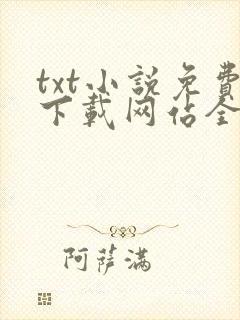 txt小説免費
下載网佔全
阿萨满